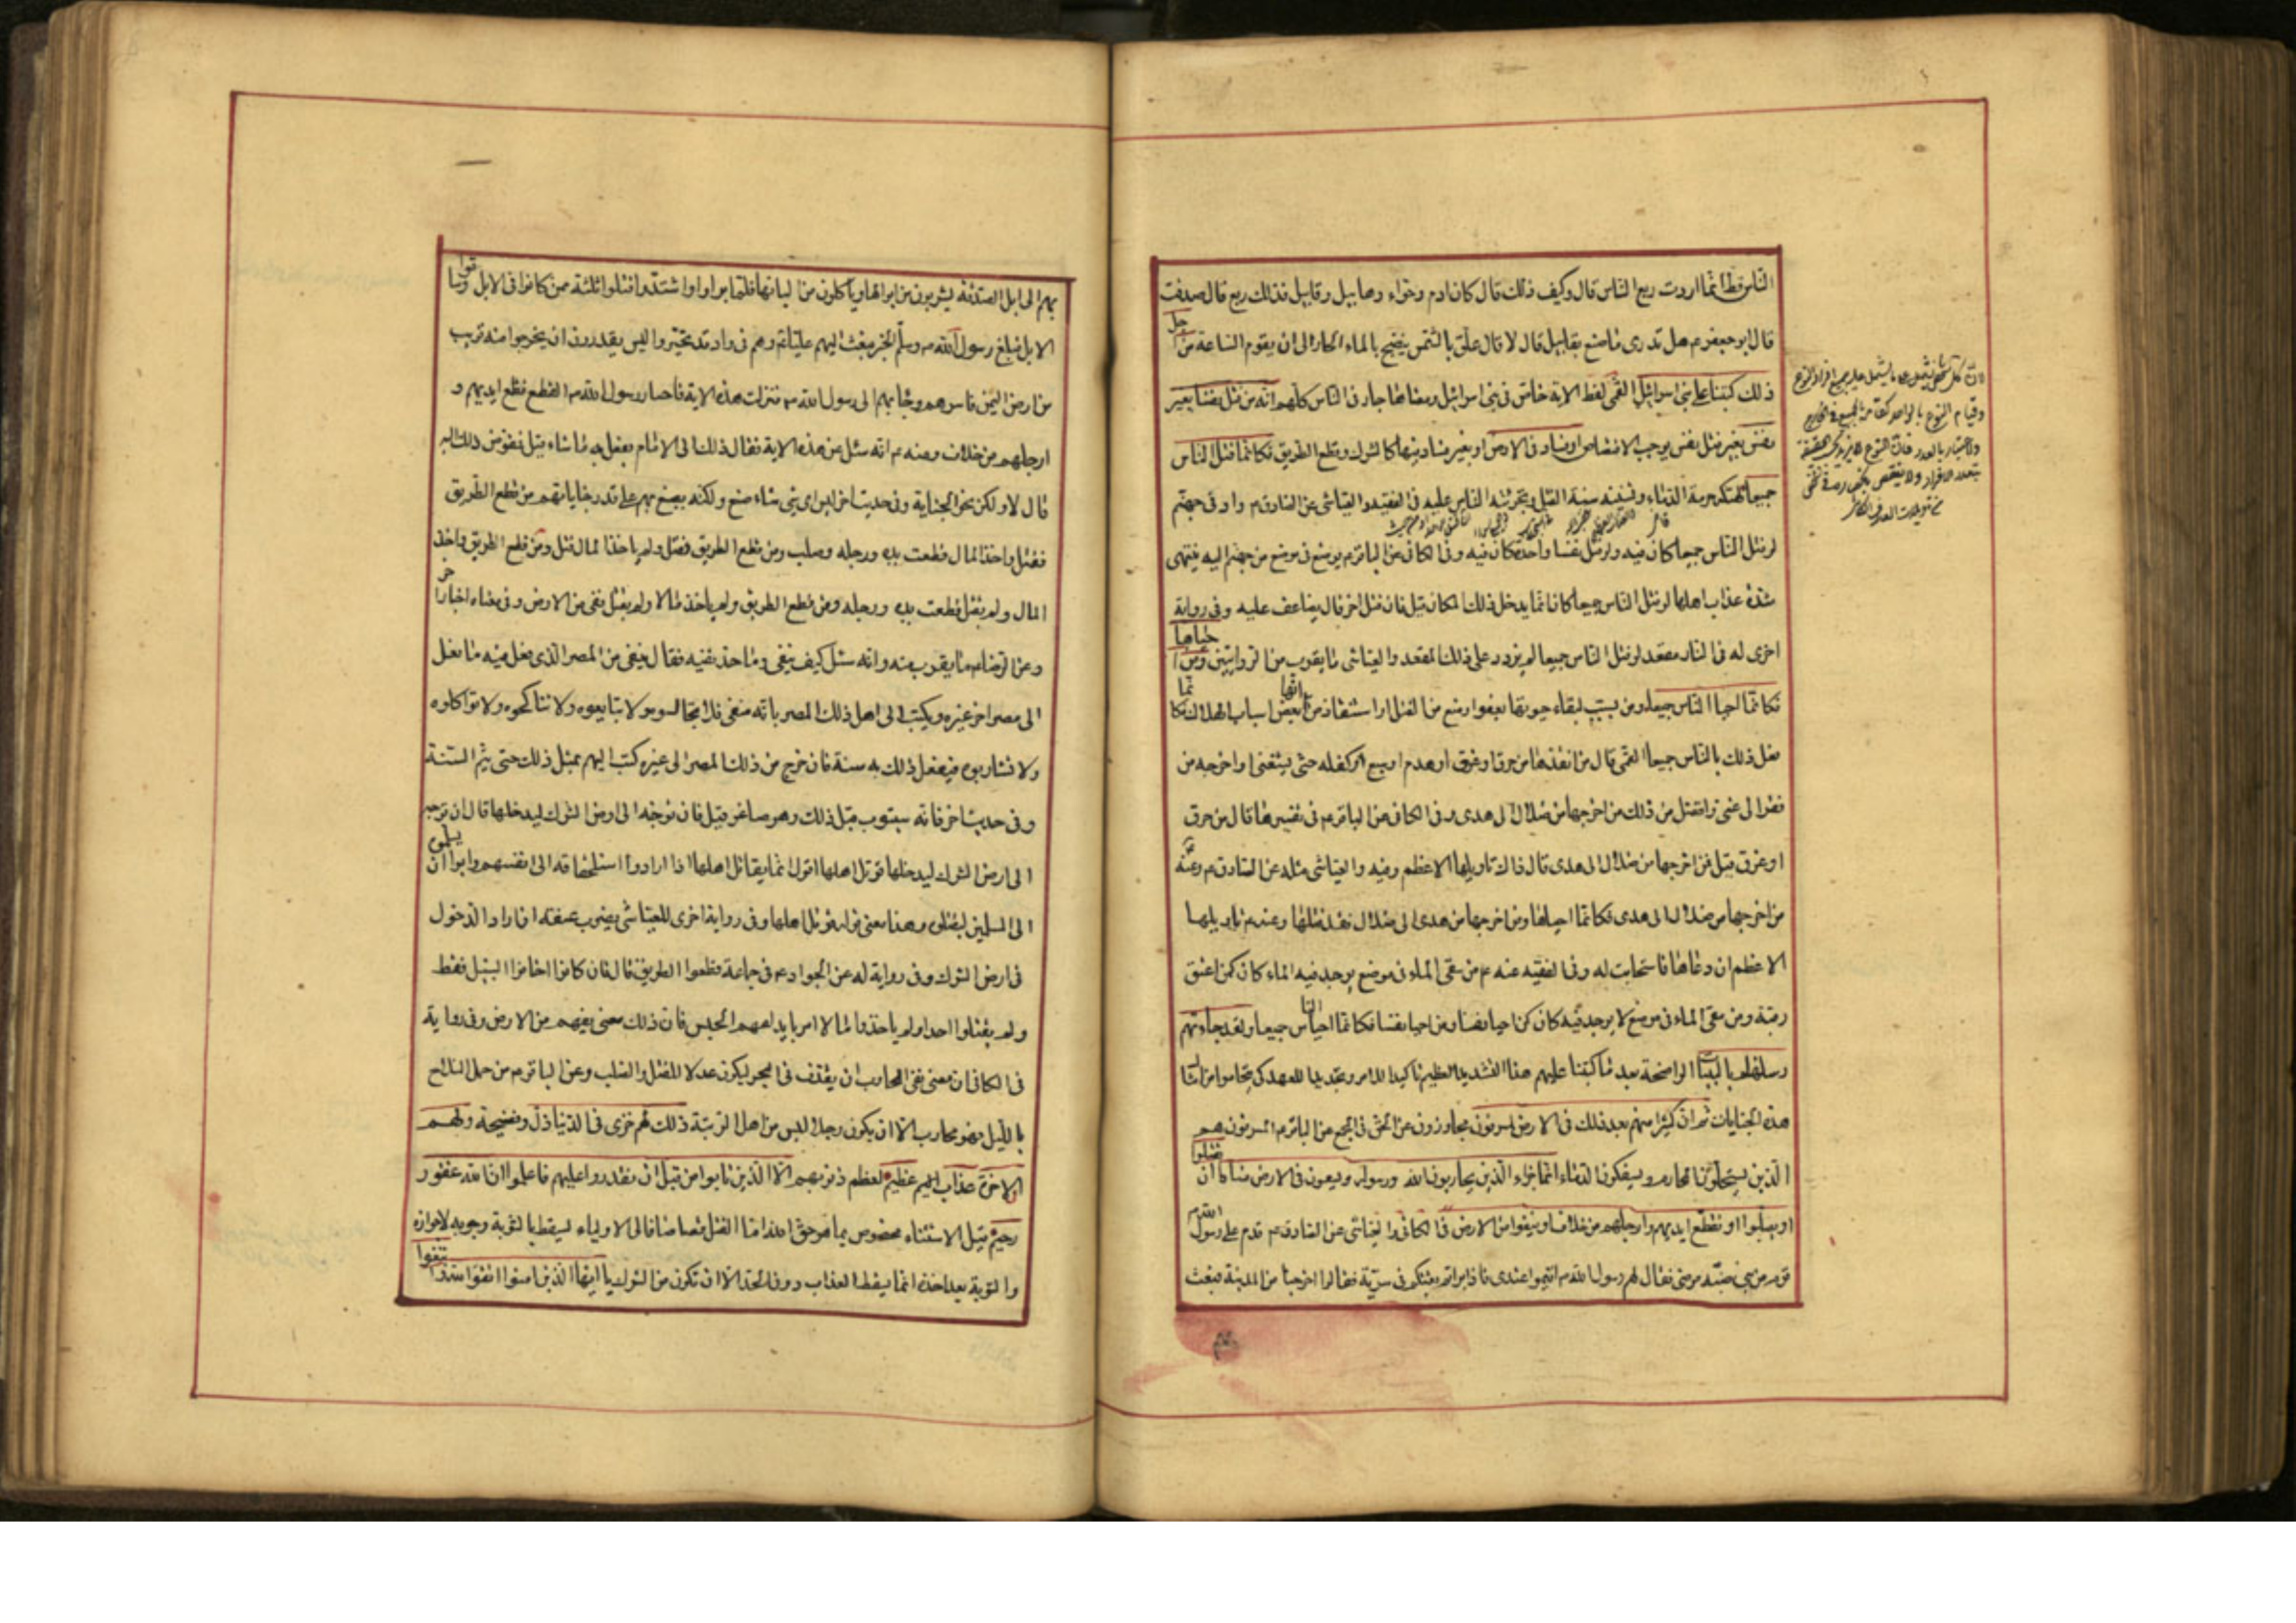 الناس قط انما اردت ربع الناس قال وكيف ذلك قال كان ادم وحواء وهابيل وقابيل فذلك ربع قال صدقت
قال ابو جعفر ع هل تدرى ما صنع بقابيل قال لا قال علق بالشمس ينضح بالماء الحار الى ان يقوم الساعة من اجل
ذلك كتبنا على بنى اسرائيل القمى لفظ الاية خاص فى بنى اسرائيل ومعناها جار فى الناس كلهم انه من قتل نفسا بغير
نفس بغير قتل نفس يوجب الاقتصاص او فساد فى الارض او بغير فساد فيها كالشرك وقطع الطريق فكانما قتل الناس
جميعا لهتكه حرمة الدماء وتسنينه سنة القتل وتجرئته الناس عليه فى الفقيه والعياشى عن الصادق ع واد فى جهنم
لو قتل الناس جميعا كان فيه ولو قتل نفسا واحدة كان فيه وفى الكافى عن الباقر ع يوضع فى موضع من جهنم اليه ينتهى
شدة عذاب اهلها لو قتل الناس جميعا كان انما يدخل ذلك المكان قيل فان قتل اخر قال يضاعف عليه وفى رواية
اخرى له فى النار مقعد لو قتل الناس جميعا لم يزدد على ذلك المقعد والعياشى ما يقرب من الروايتين ومن احياها
فكانما احيا الناس جميعا ومن تسبب لبقاء حيوتها بعفو او منع من القتل او استنقاذ من بعض اسباب الهلاك فكانما
فعل ذلك بالناس جميعا القمى قال من انقذها من حرق او غرق او هدم او سبع او كفله حتى يستغنى او اخرجه من
فقر الى غنى وافضل من ذلك من اخرجها من ضلال الى هدى وفى الكافى عن الباقر ع فى تفسيرها قال من حرق
او غرق قيل فمن اخرجها من ضلال الى هدى قال ذاك تاويلها الاعظم وفيه والعياشى مثله عن الصادق ع وعنه ع
من اخرجها من ضلال الى هدى فكانما احياها ومن اخرجها من هدى الى ضلال فقد قتلها وعنه ع تاويلها
الاعظم ان دعاها فاستجابت له وفى الفقيه عنه ع من سقى الماء فى موضع يوجد فيه الماء كان كمن اعتق
رقبة ومن سقى الماء فى موضع لا يوجد فيه كان كمن احيا نفسا ومن احيا نفسا فكانما احيا الناس جميعا ولقد جاءتهم
رسلنا بالبينات الواضحة بعد ما كتبنا عليهم هذا التشديد العظيم تاكيدا للامر وتجديدا للعهد كى يتحاموا امثال
هذه الجنايات ثم ان كثيرا منهم بعد ذلك فى الارض لمسرفون مجاوزون عن الحق فى المجمع عن الباقر ع المسرفون هم
الذين يستحلون المحارم ويسفكون الدماء انما جزاء الذين يحاربون الله ورسوله ويسعون فى الارض فسادا ان يقتلوا
او يصلبوا او تقطع ايديهم وارجلهم من خلاف او ينفوا من الارض فى الكافى والعياشى عن الصادق ع قدم على رسول الله ص
قوم من بنى ضبة مرضى فقال لهم رسول الله ص اقيموا عندى فاذا براتم بعثتكم فى سرية فقالوا اخرجنا من المدينة فبعث
بهم الى ابل الصدقة يشربون من ابوالها وياكلون من البانها فلما براوا واشتدوا قتلوا ثلثة ممن كانوا فى الابل وساقوا
الابل فبلغ رسول الله ص وسلم الخبر فبعث اليهم عليا ع وهم فى واد قد تحيروا ليس يقدرون ان يخرجوا منه قريب
من ارض اليمن فاسرهم وجاء بهم الى رسول الله ص فنزلت هذه الاية فاختار رسول الله ص القطع فقطع ايديهم و
ارجلهم من خلاف وعنه ع انه سئل عن هذه الاية فقال ذلك الى الامام يفعل به ما شاء قيل فمفوض ذلك اليه
قال لا ولكن نحو الجناية وفى حديث اخر ليس اى شىء شاء صنع ولكنه يصنع بهم على قدر جناياتهم من قطع الطريق
فقتل واخذ المال قطعت يده ورجله وصلب ومن قطع الطريق فقتل ولم ياخذ المال قتل ومن قطع الطريق واخذ
المال ولم يقتل قطعت يده ورجله ومن قطع الطريق ولم ياخذ مالا ولم يقتل نفى من الارض وفى معناه اخبار اخر
وعن الرضا ع ما يقرب منه وانه سئل كيف ينفى وما حد نفيه فقال ينفى من المصر الذى فعل فيه ما فعل
الى مصر اخر غيره ويكتب الى اهل ذلك المصر بانه منفى فلا تجالسوه ولا تبايعوه ولا تناكحوه ولا تواكلوه
ولا تشاربوه فيفعل ذلك به سنة فان خرج من ذلك المصر الى غيره كتب اليهم بمثل ذلك حتى يتم السنة
وفى حديث اخر فانه سيتوب قبل ذلك وهو صاغر قيل فان توجه الى ارض الشرك ليدخلها قال ان توجه
الى ارض الشرك ليدخلها قوتل اهلها اقول انما يقاتل اهلها اذا ارادوا استلحاقه الى انفسهم وابوا ان يسلموه
الى المسلمين ليقتلوه وهذا معنى قوله قوتل اهلها وفى رواية اخرى للعياشى يضرب عنقه ان اراد الدخول
فى ارض الشرك وفى رواية له عن الجواد ع فى جماعة قطعوا الطريق قال فان كانوا اخافوا السبيل فقط
ولم يقتلوا احدا ولم ياخذوا مالا امر بايداعهم الحبس فان ذلك معنى نفيهم من الارض وفى رواية
فى الكافى ان معنى نفى المحارب ان يقذف فى البحر ليكون عدلا للقتل والصلب وعن الباقر ع من حمل السلاح
بالليل فهو محارب الا ان يكون رجلا ليس من اهل الريبة ذلك لهم خزى فى الدنيا ذل وفضيحة ولهم
فى الاخرة عذاب عظيم لعظم ذنوبهم الا الذين تابوا من قبل ان تقدروا عليهم فاعلموا ان الله غفور
رحيم قيل الاستثناء مخصوص بما هو حق الله اما القتل قصاصا فالى الاولياء يسقط بالتوبة وجوبه لا جوازه
والتوبة بعد اخذه انما يسقط العذاب دون الحد الا ان تكون من الشرك يا ايها الذين امنوا اتقوا الله وابتغوا